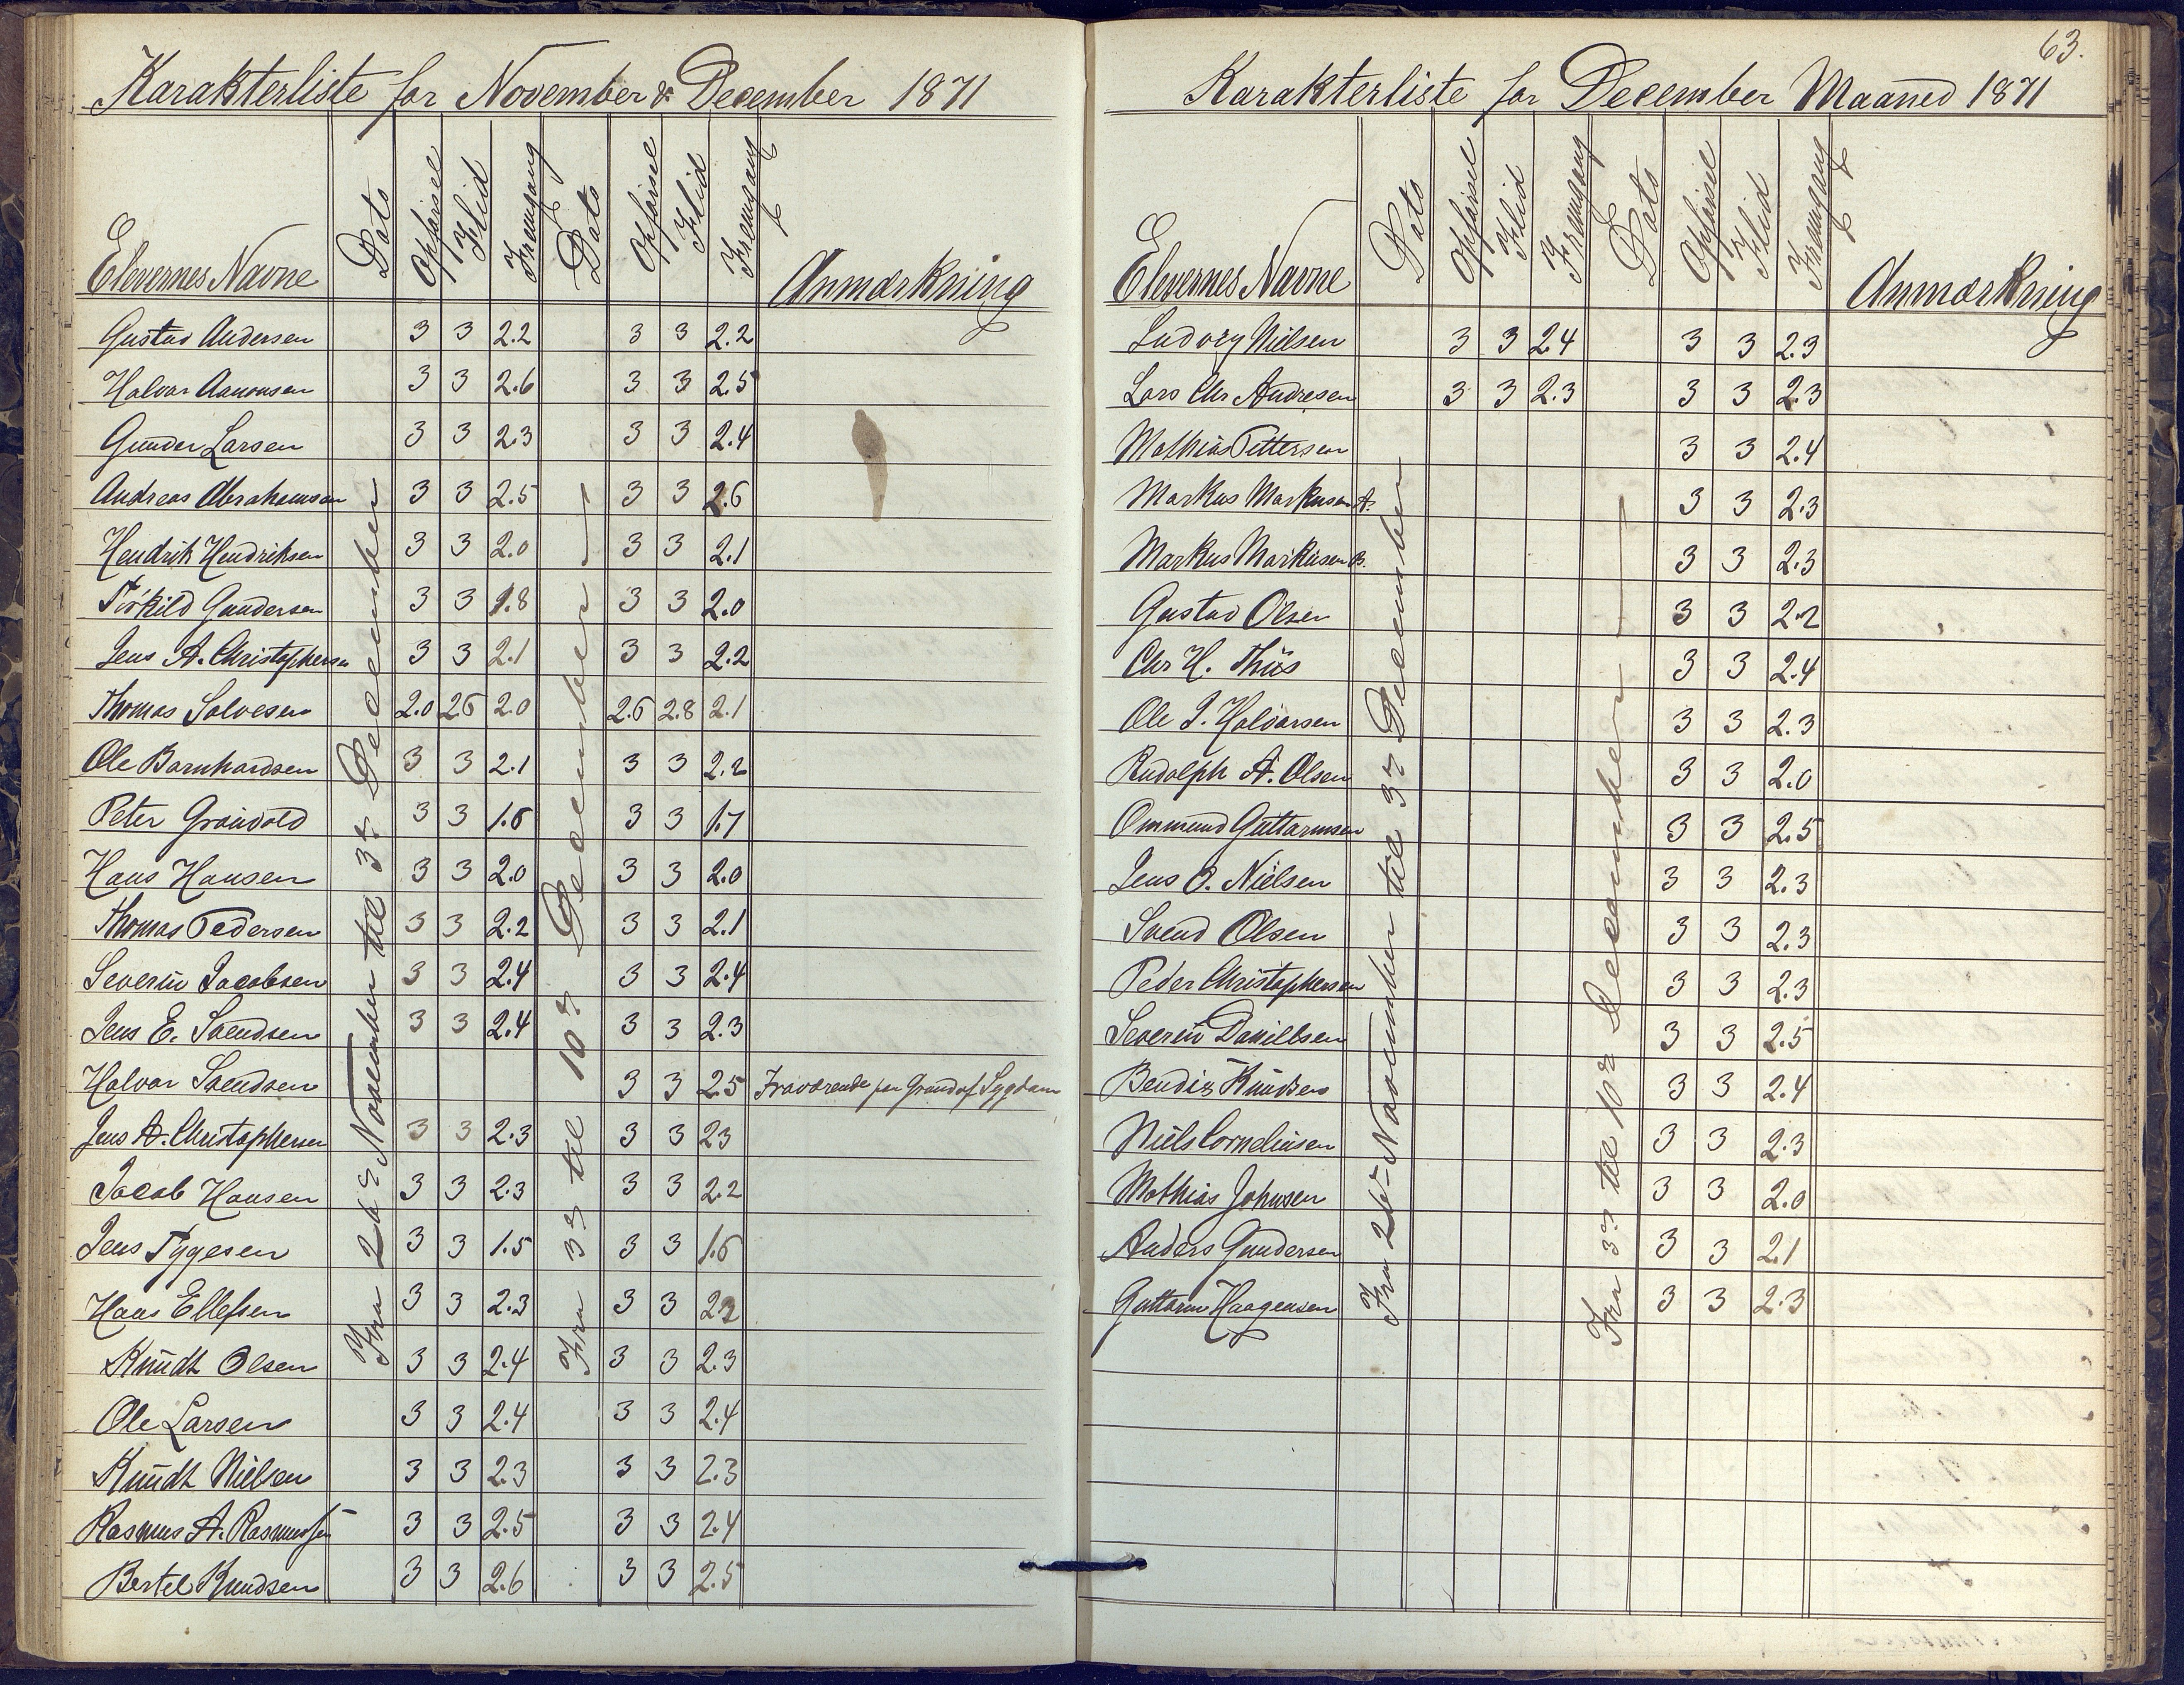 Karakterliste for November & December 1871
Elevernes Navne Dato Opførsel Flid Fremgang Dato Opførsel Flid Fremgang Anmærkning
Fra 26de November til 3de December
Fra 3de til 10de December
Gustav Andersen 3 3 2.2 3 3 2.2
Halvor Aanonsen 3 3 2.6 3 3 2.5
Gunder Larsen 3 3 2.3 3 3 2.4
Andreas Abrahamsen 3 3 2.5 3 3 2.6
Hendrik Hendriksen 3 3 2.0 3 3 2.1
Torkild Gundersen 3 3 1.8 3 3 2.0
Jens A. Christophersen 3 3 2.1 3 3 2.2
Thomas Salvesen 2.0 2.6 2.0 2.6 2.8 2.1
Ole Barnhardsen 3 3 2.1 3 3 2.2
Peter Grønvold 3 3 1.6 3 3 1.7
Hans Hansen 3 3 2.0 3 3 2.0
Thomas Pedersen 3 3 2.2 3 3 2.1
Severin Jacobsen 3 3 2.4 3 3 2.4
Jens E. Svendsen 3 3 2.4 3 3 2.3
Halvor Svendsen 3 3 2.5 Fraværende paa Grund af Sygdom
Jens A. Christophersen 3 3 2.3 3 3 2.3
Jacob Hansen 3 3 2.3 3 3 2.2
Jens Tygesen 3 3 1.5 3 3 1.6
Hans Ellefsen 3 3 2.3 3 3 2.2
Knudt Olsen 3 3 2.4 3 3 2.3
Ole Larsen 3 3 2.4 3 3 2.4
Knudt Nielsen 3 3 2.3 3 3 2.3
Rasmus A. Rasmussen 3 3 2.5 3 3 2.4
Bertel Knudsen 3 3 2.6 3 3 2.5
63.
Karakterliste for December Maaned 1871
Elevernes Navne Dato Opførsel Flid Fremgang Dato Opførsel Flid Fremgang Anmærkning
Fra 26de November til 3de December
Fra 3de til 10de December
Ludvig Nielsen 3 3 2.4 3 3 2.3
Lars Chr Andresen 3 3 2.3 3 3 2.3
Mathias Pettersen 3 3 2.4
Markus Markusen A. 3 3 2.3
Markus Markusen B. 3 3 2.3
Gustav Olsen 3 3 2.2
Chr H. Thiis 3 3 2.4
Ole J. Halvorsen 3 3 2.3
Rudolph A. Olsen 3 3 2.0
Ommund Guttormsen 3 3 2.5
Jens O. Nielsen 3 3 2.3
Svend Olsen 3 3 2.3
Peder Christophersen 3 3 2.3
Severin Daniellsen 3 3 2.5
Bendix Knudsen 3 3 2.4
Niels Corneliusen 3 3 2.3
Mathias Johnsen 3 3 2.0
Anders Gundersen 3 3 2.1
Guttorm Haagensen 3 3 2.3